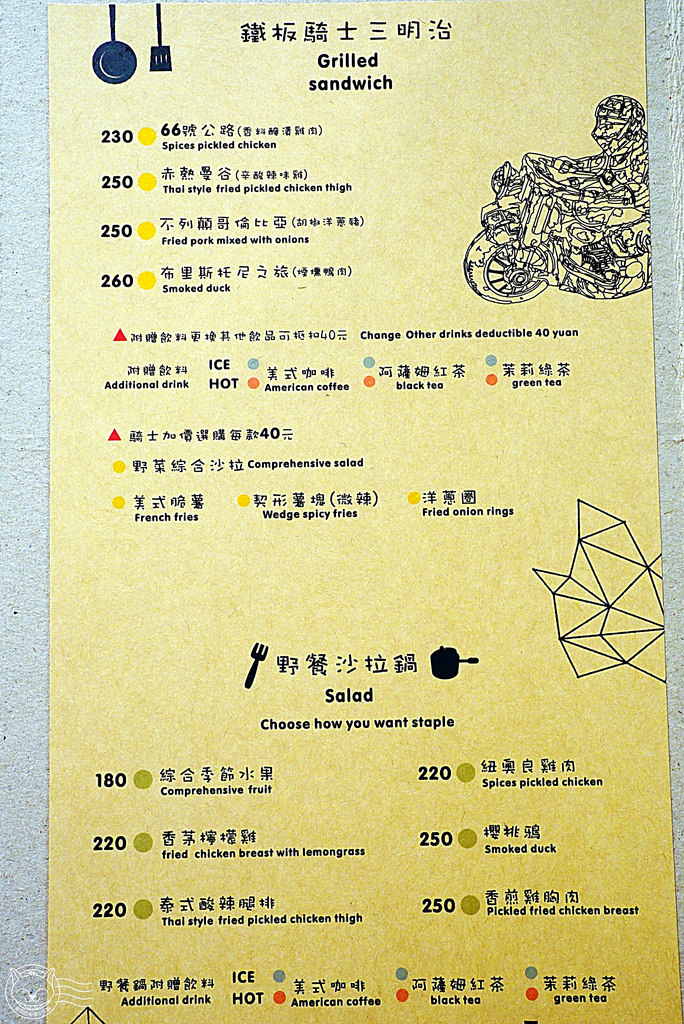 鐵板騎士三明治
Grilled
sandwich
230 66號公路(香料醃漬雞肉)
Spices pickled chicken
250 赤熱曼谷(辛酸辣味雞)
Thai style fried pickled chicken thigh
250 不列顛哥倫比亞(胡椒洋蔥豬)
Fried pork mixed with onions
260 布里斯托尼之旅(煙燻鴨肉)
Smoked duck
附贈飲料更換其他飲品可抵扣40元 Change Other drinks deductible 40 yuan
附贈飲料 ICE 美式咖啡 阿薩姆紅茶 茉莉綠茶
Additional drink HOT American coffee black tea green tea
騎士加價選購每款40元
野菜綜合沙拉 Comprehensive salad
美式脆薯 契形薯塊(微辣) 洋蔥圈
French fries Wedge spicy fries Fried onion rings
野餐沙拉鍋
Salad
Choose how you want staple
180 綜合季節水果 220 紐奧良雞肉
Comprehensive fruit Spices pickled chicken
220 香茅檸檬雞 250 櫻桃鴉
fried chicken breast with lemongrass Smoked duck
220 泰式酸辣腿排 250 香煎雞胸肉
Thai style fried pickled chicken thigh Pickled fried chicken breast
野餐鍋附贈飲料 ICE 美式咖啡 阿薩姆紅茶 茉莉綠茶
Additional drink HOT American coffee black tea green tea